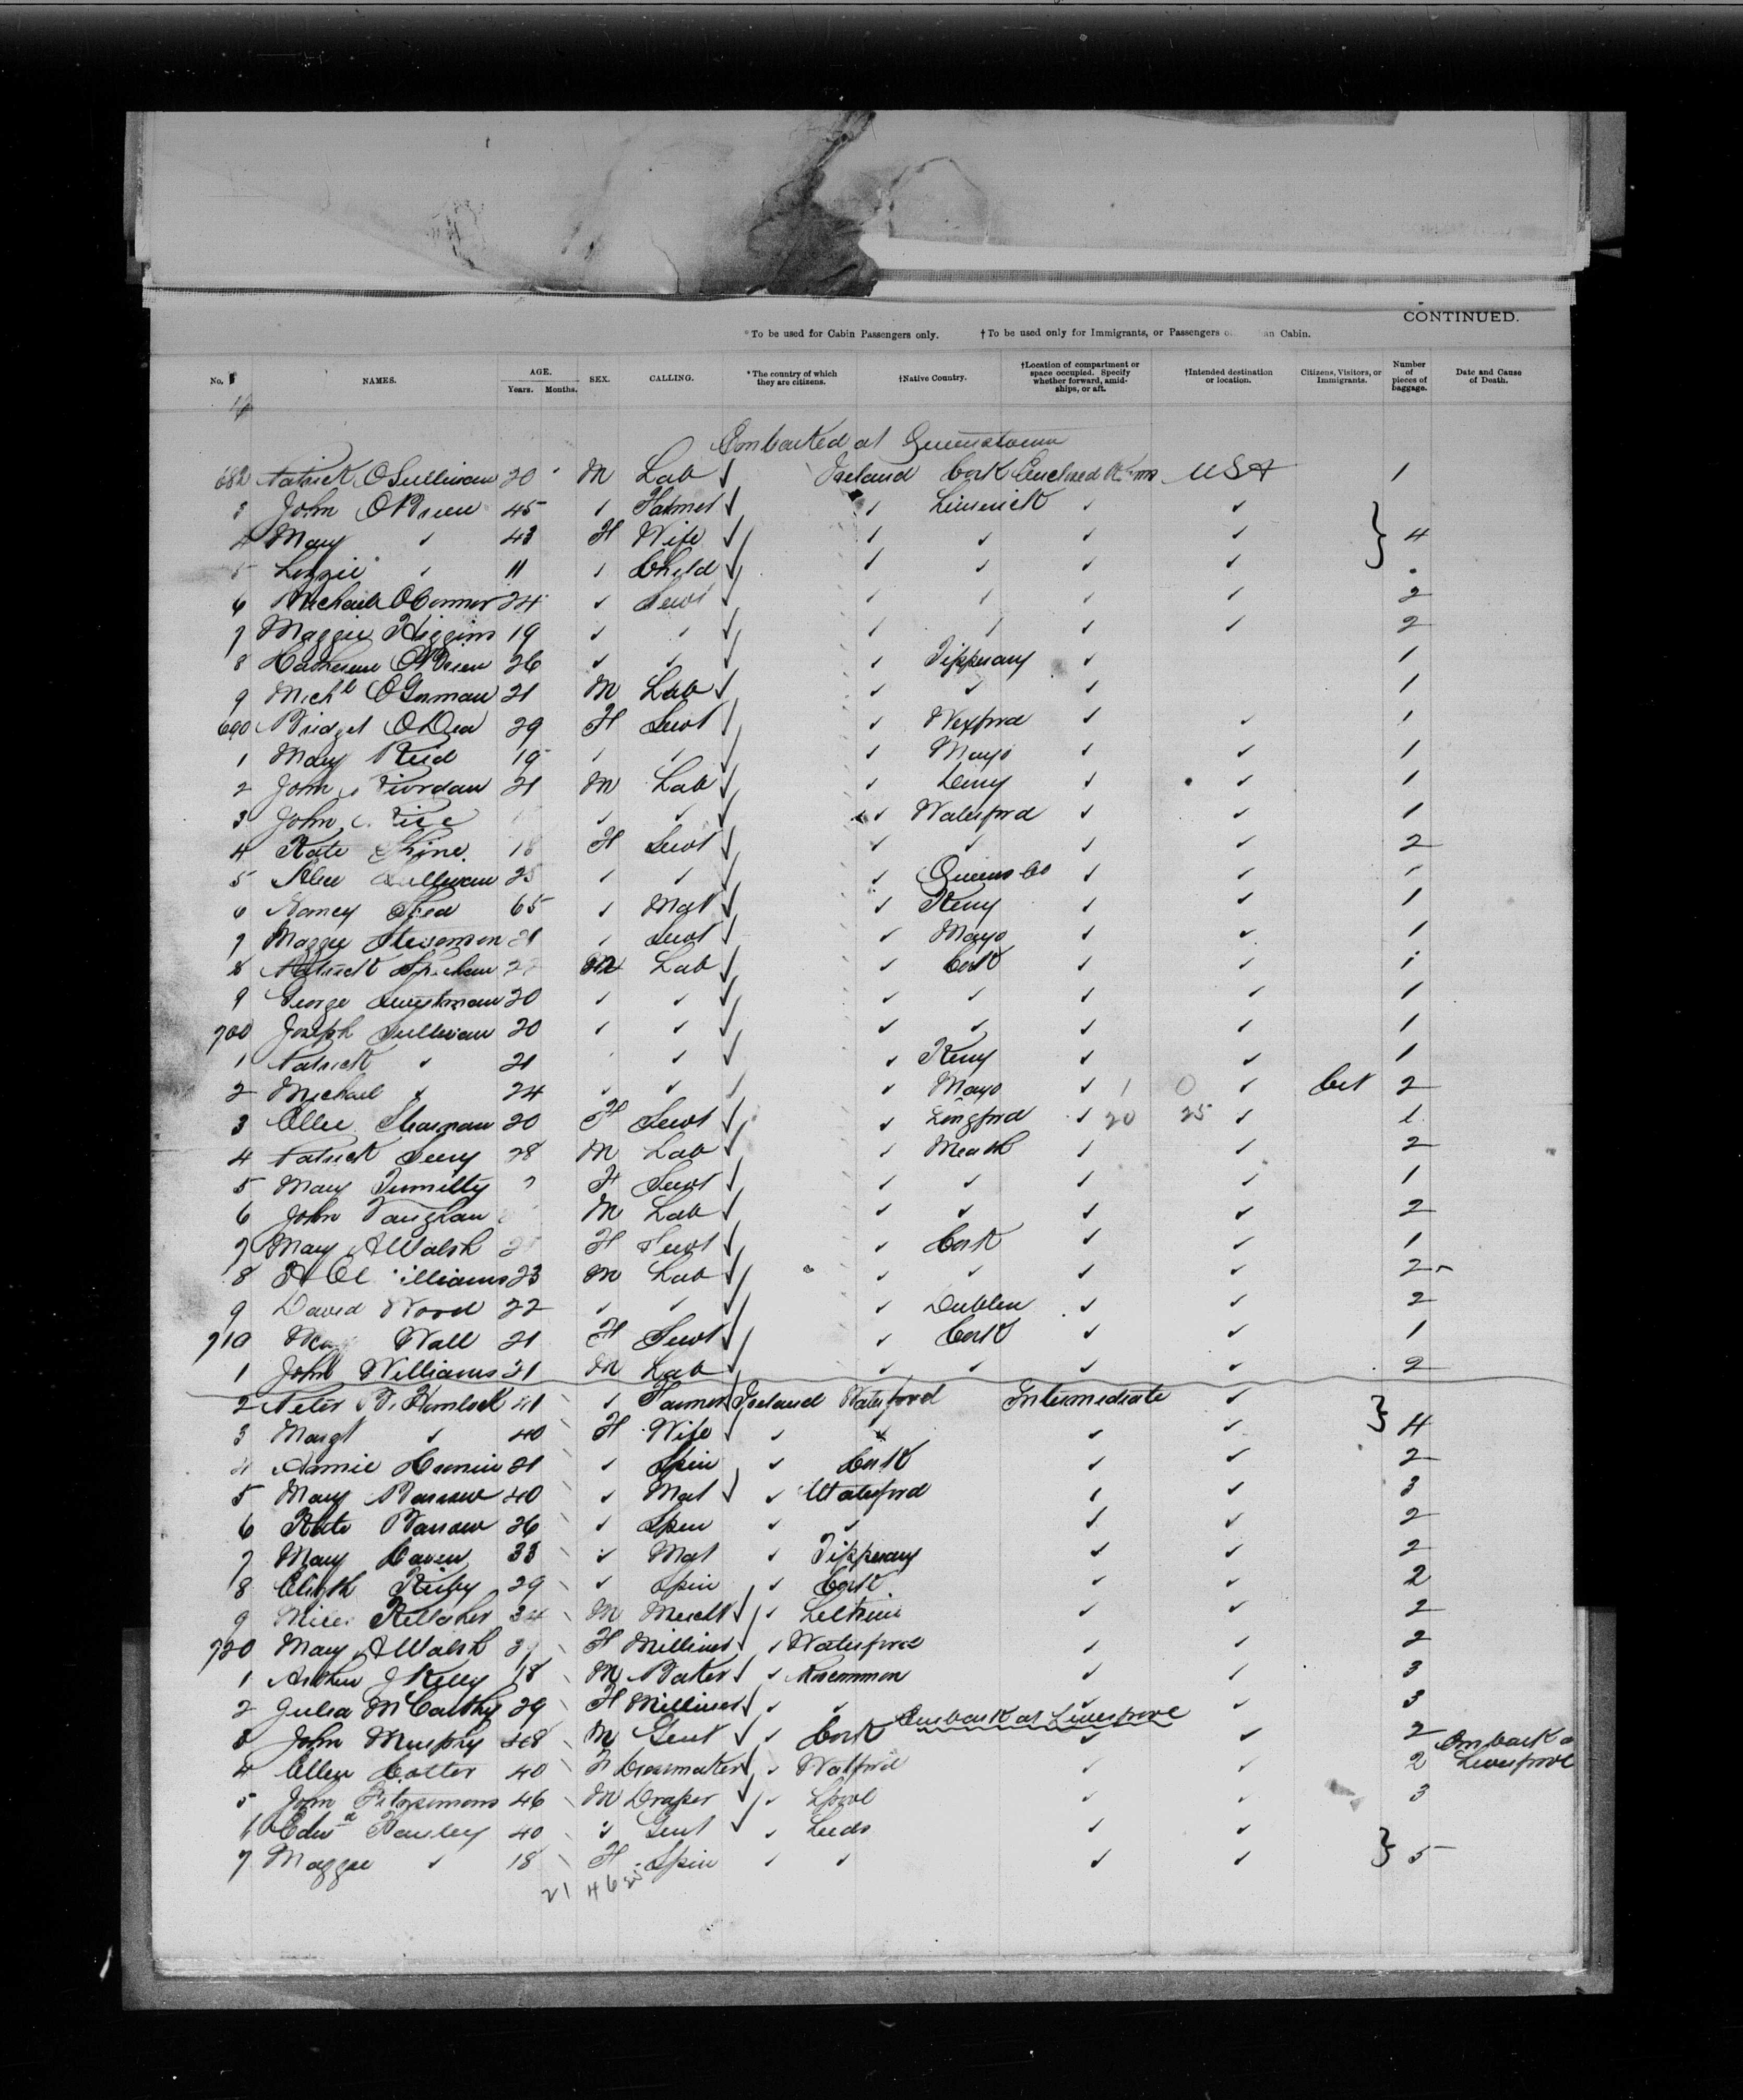 CONTINUED.
*To be used for Cabin Passengers only. †To be used only for Immigrants, or Passengers o an Cabin.
No. NAMES. AGE. Years. Months. SEX. CALLING. *The country of which they are citizens. †Native Country. †Location of compartment or space occupied. Specify whether forward, amidships, or aft. †Intended destination or location. Citizens, Visitors, or Immigrants. Number of pieces of baggage. Date and Cause of Death.
Embarked at Queenstown
682 Patrick O'Sullivan 20 M Lab Ireland Cork Enclosed USA 1
3 John O'Brien 45 " Farmer " Limerick " "
4 Mary " 43 F Wife " " " " } 4
5 Lizzie " 11 " Child " " " "
6 O'Connor 24 " Servt " " " " 2
7 Maggie Higgins 19 " " " " " " 2
8 Catherine O'Brien 26 " " " Tipperary " 1
9 Michl O'Gorman 21 M Lab " " " 1
690 Bridget O'Dea 29 F Servt " Wexford " " 1
1 Mary Reid 19 " " " Mayo " " 1
2 John Riordan 21 M Lab " " " 1
3 John Rice " " " Waterford " " 1
4 Kate Shine 18 F Servt " " " " 2
5 Sullivan 25 " " " Queens Co " "
6 Nancy Shea 65 " Mat " Kerry " " 1
7 Maggie 21 " Servt " Mayo " " 1
8 Patrick M Lab " Cork " " 1
9 George 20 " " " " " " 1
700 Joseph Sullivan 20 " " " " " " 1
1 Patrick " 21 " " Kerry " " 1
2 Michael " 24 " " " Mayo " 1 0 " 2
3 Ellie 20 F Servt " Longford " 20 25 " 1
4 Patrick 28 M Lab " Meath " " 2
5 Mary F Servt " " " " 1
6 John Vaughan M Lab " " " " 2
7 Mary A Walsh F Servt " Cork " " 1
8 illiams 23 M Lab " " " " 2
9 David Wood 22 " " " Dublin " " 2
710 Wall 21 F Servt " Cork " " 1
1 John Williams 21 M Lab " " " " 2
2 Peter 41 " Farmer Ireland Waterford Intermediate "
3 Margt " 40 F Wife " " " " } 4
4 Annie Cronin 21 " Spin " Cork " " 2
5 Mary 40 " Mat " Waterford " " 3
6 Kate 26 " Spin " " " " 2
7 Mary 33 " Mat " Tipperary " " 2
8 Elizth 29 " Spin " Cork " " 2
9 Kellaher 34 M Mercht " Leitrim " " 2
720 Mary A Walsh F Milliner " Waterford " " 2
1 Arthur J Kelly 18 M Baker " Roscommon " " 3
2 Julia McCarthy 29 F Milliner " " " " 3
Embark at Liverpool
3 John Murphy 48 M Gent " Cork " " 2 Embark a
4 Ellen Cotter 40 F Dressmaker " Watford " " 2 Liverpool
5 John Fitzsimons 46 M Draper " Lpool " " 3
6 Edwd 40 " Gent " Leeds " "
7 Maggie " 18 F Spin " " " " } 5
21 46